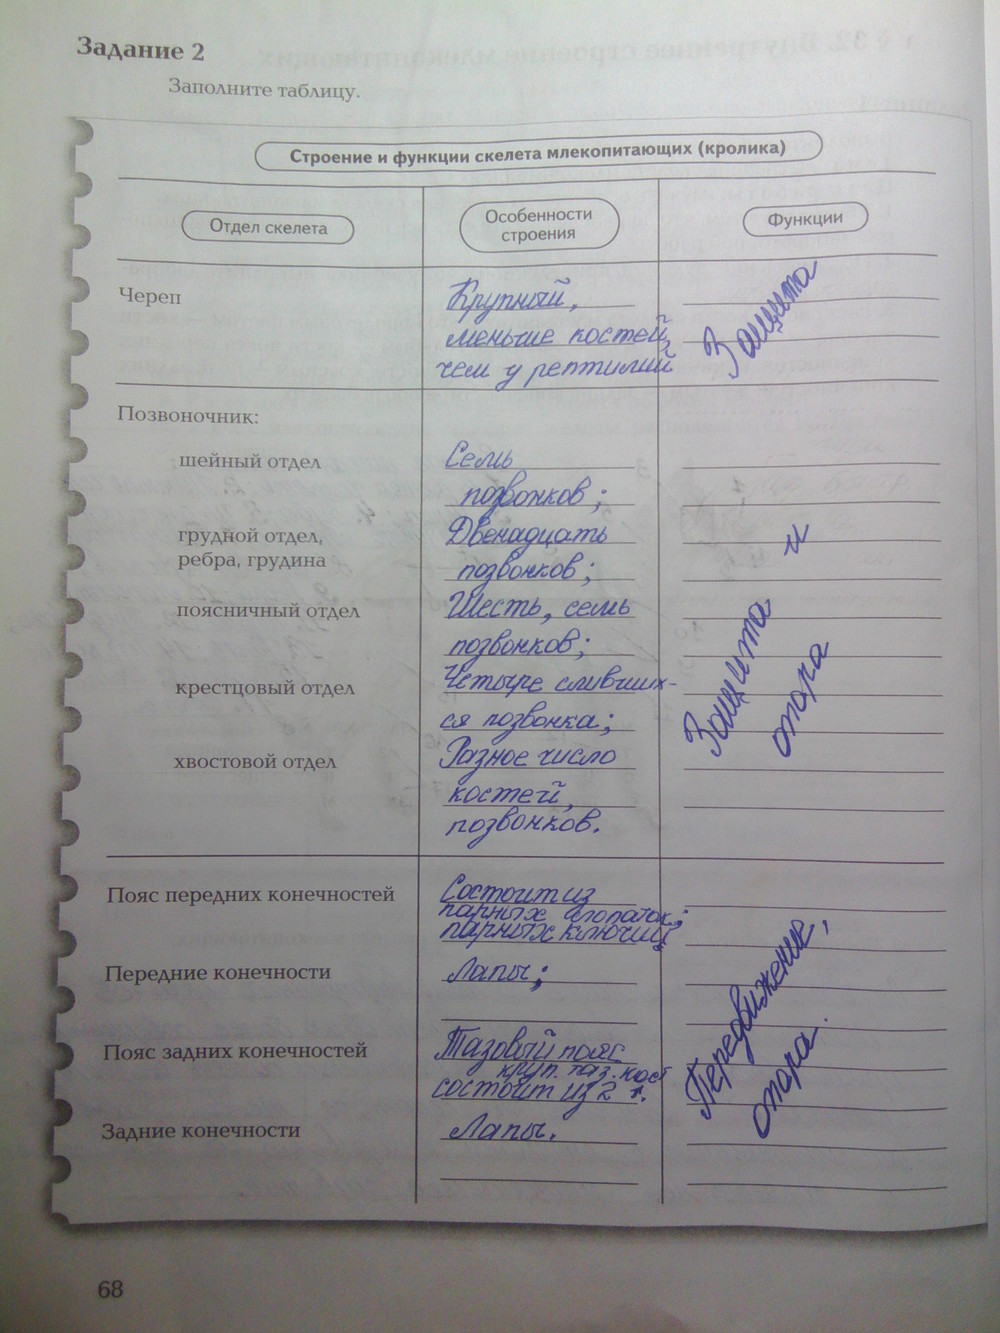 Задание 2
Заполните таблицу.
Строение и функции скелета млекопитающих (кролика)
Отдел скелета
Особенности
строения
Функции
Череп
Крупный,
меньше костей,
чем у рептилий
Защита
Позвоночник:
шейный отдел
Семь
позвонков;
грудной отдел,
ребра, грудина
Двенадцать
позвонков;
поясничный отдел
Шесть, семь
позвонков;
крестцовый отдел
Четыре сливших-
ся позвонка;
хвостовой отдел
Разное число
костей,
позвонков.
Защита и
опора
Пояс передних конечностей
Состоит из
парных лопаток;
парных ключиц
Передние конечности
Лапы;
Пояс задних конечностей
Тазовый пояс
круп. таз. кост
состоит из 2
Задние конечности
Лапы.
Передвижение,
опора.
68